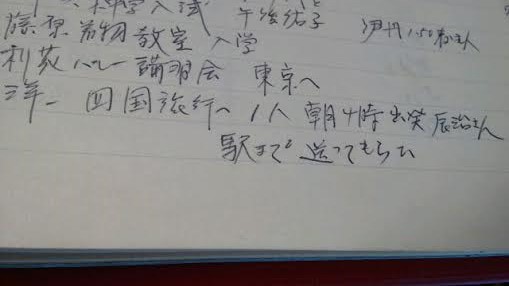 大学入試 午後 結子 伊丹 1.50
藤原着物教室 入学
利英バレー講習会 東京へ
洋一 四国旅行へ 1人 朝4時出発 辰治さん
駅まで送ってもらう